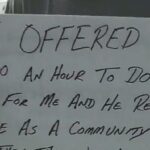 OFFERED
AN HOUR TO DO
FOR ME AND HE RE
AS A COMMUNITY